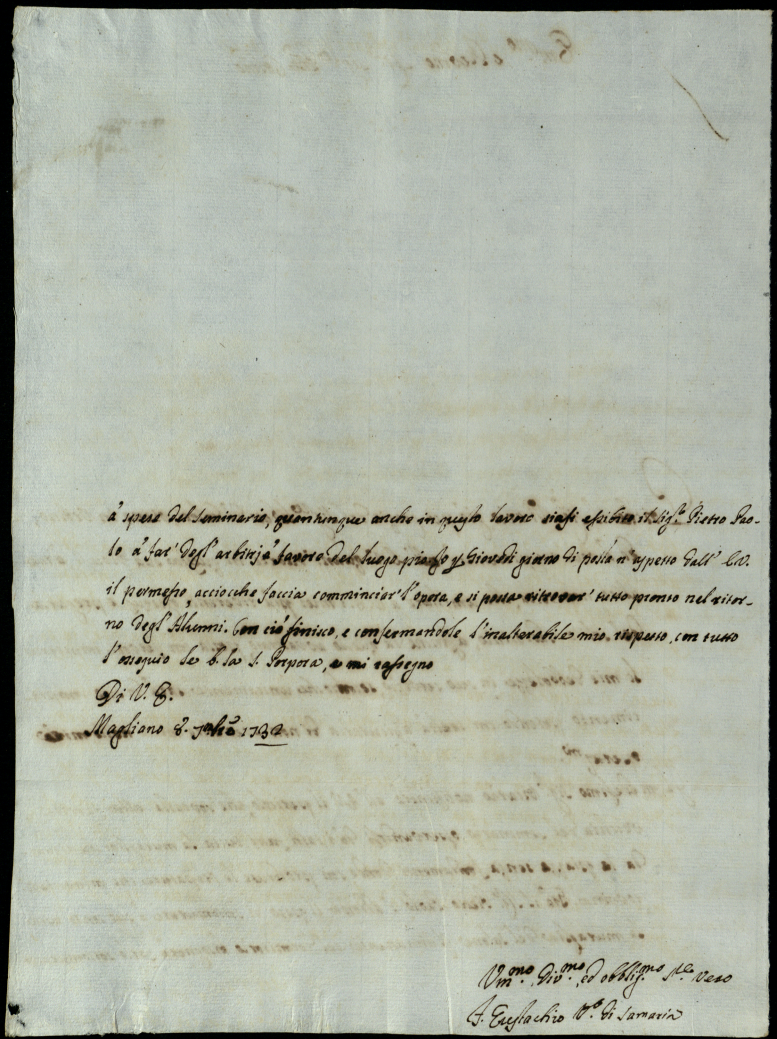 à spese del Seminario, quantunque anche in questo lavoro siasi essibito il Sig.r Pietro Pao-
lo à far' degl' arbitrj à favore del luogo Giovedì giorno di posta n' aspetto dall' E.V.
il permesso, acciocche faccia comminciar' l'opera, e si possa ritrovar' tutto pronto nel ritor-
no degl' Alunni. Con ciò finisco, e confermandole l'inalterabile mio rispetto, con tutto
l'ossequio le b. la S. Porpora, e mi rassegno
Di V. E.
Magliano 8. 7mbre 1732
Vm.mo, Div.mo, ed obblig.mo Se.re vero
F. Eustachio V.o di Samaria